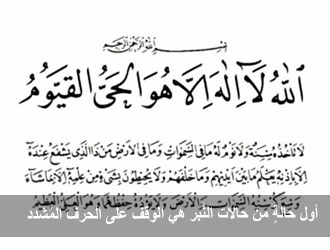 بسم الله الرحمن الرحيم
اللهُ لَآ إِلٰهَ إِلَّا هُوَ الْحَىُّ الْقَيُّومُ
لَا تَأْخُذُهُ سِنَةٌ وَلَا نَوْمٌ لَهُ مَا فِي السَّمٰوَاتِ وَمَا فِي الْاَرْضِ مَنْ ذَا الَّذِي يَشْفَعُ عِنْدَهُ
اِلَّا بِاِذْنِهِ يَعْلَمُ مَا بَيْنَ اَيْدِيهِمْ وَمَا خَلْفَهُمْ وَلَا يُحِيطُونَ بِشَيْءٍ مِنْ عِلْمِهِ اِلَّا بِمَا شَاءَ
وَسِعَ كُرْسِيُّهُ السَّمٰوَاتِ وَالْاَرْضَ وَلَا يَؤُدُهُ حِفْظُهُمَا وَهُوَ الْعَلِيُّ الْعَظِيمُ
أول حالةٍ من حالات النَّبر هي الوقف على الحرف المُشدد